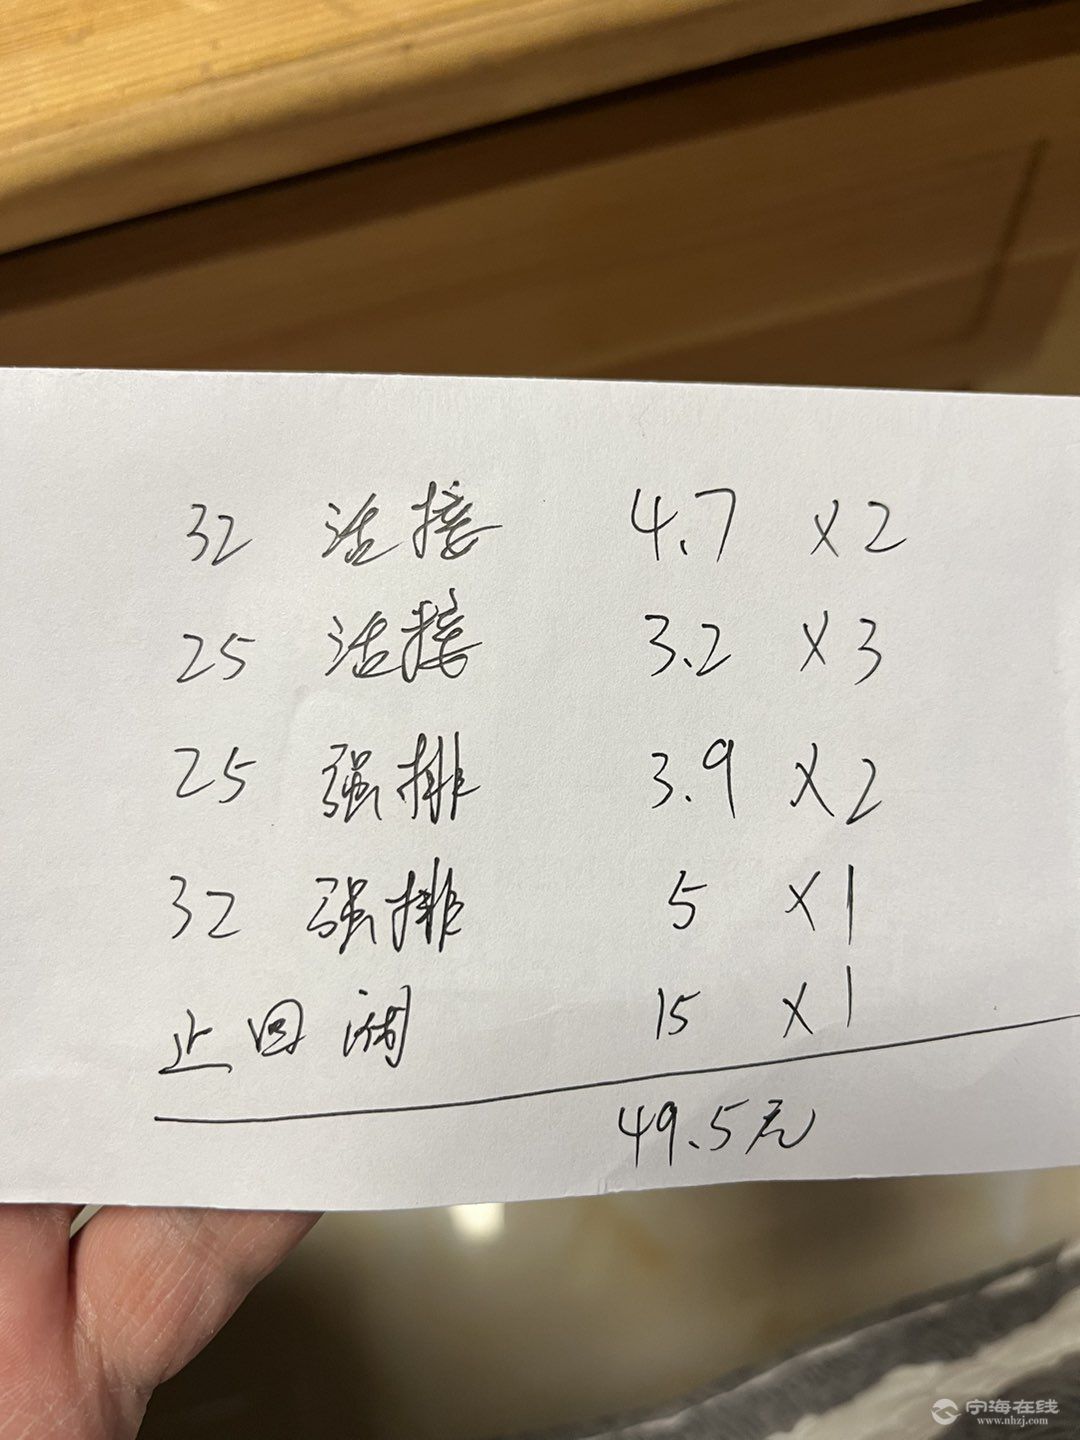 32 活接 4.7 ×2
25 活接 3.2 ×3
25 强排 3.9 ×2
32 强排 5 ×1
止回阀 15 ×1
49.5元
宁海在线
www.nhzj.com